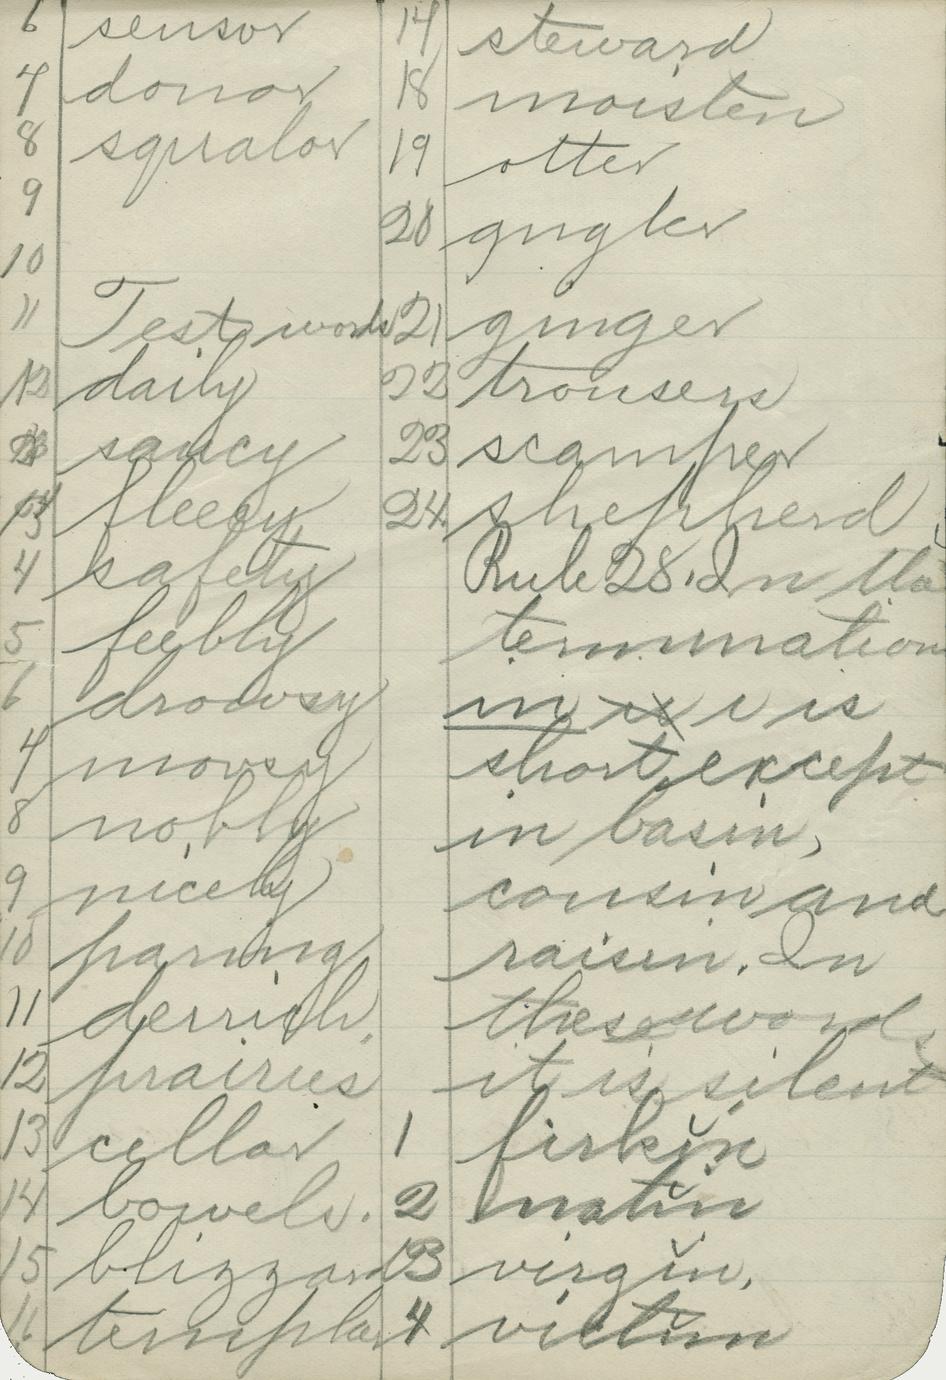 6 sensor
7 donor
8 squalor
9
10
11 Test words
12 daily
saucy
fleecy
4 safety
5 feebly
6 drowsy
7 movsy
8 nobly
9 nicely
10 paring
11 derrick.
12 prairies
13 cellar
14 bowels.
15 blizzard
16 templar
14 steward
18 moisten
19 otter
20 gugler
21 ginger
22 trousers
23 scamper
24 shepherd
Rule 28. In the
termination
in i is
short, except
in basin,
cousin and
raisin. In
these words
it is silent
1 firkĭn
2 matĭn
3 virgĭn.
4 victim